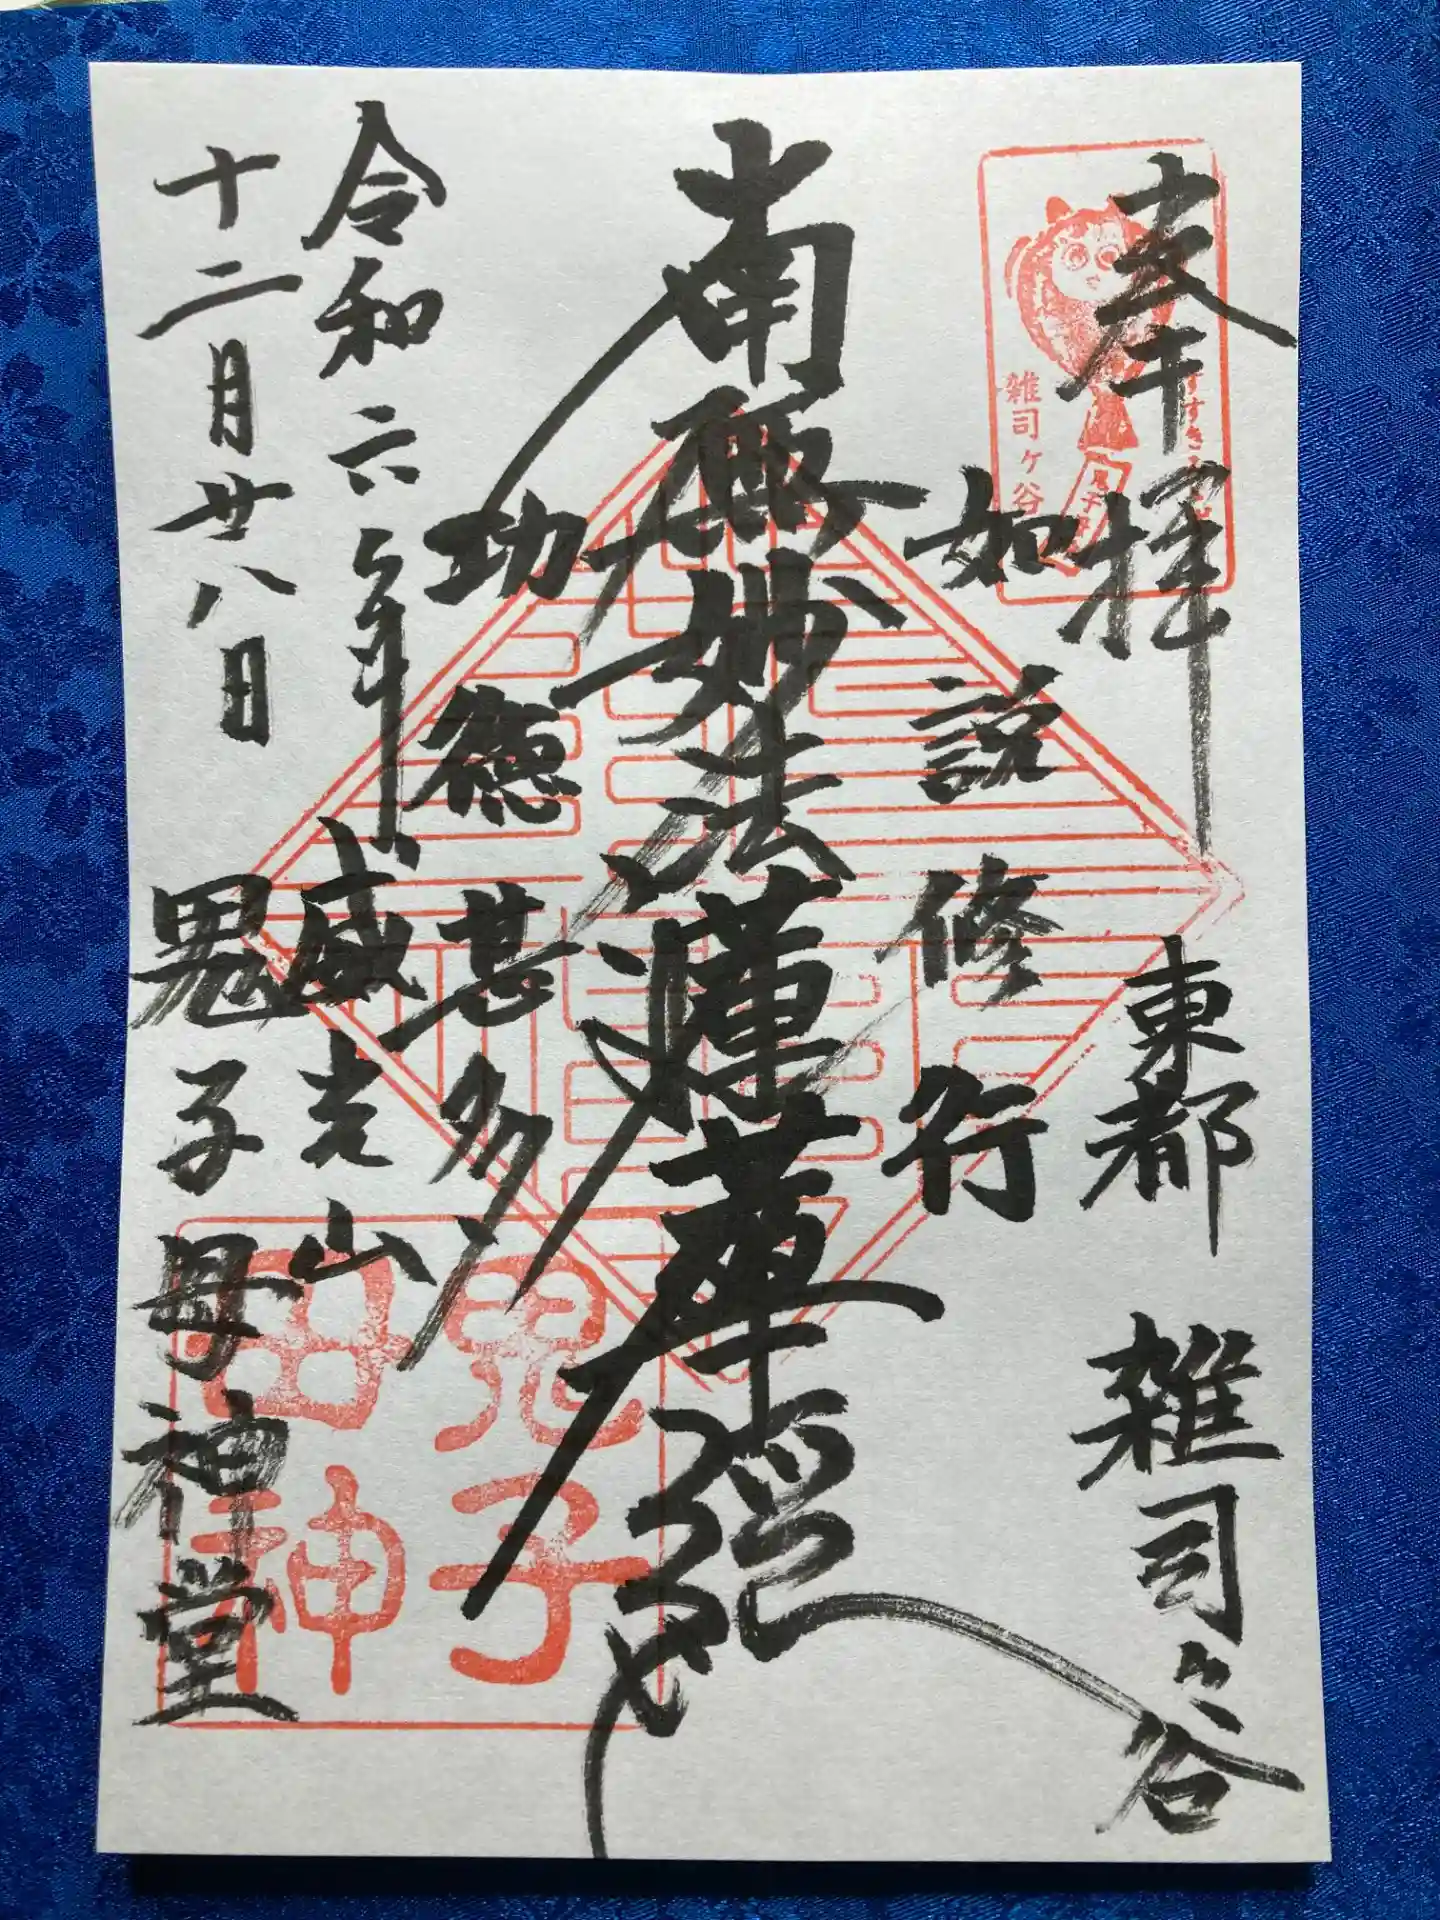 奉拝
東都 雑司ヶ谷
雑司ヶ谷
如説修行
南無妙法蓮華経
功徳甚多
令和六年
威光山
十二月廿八日
鬼子母神堂
鬼子
母神